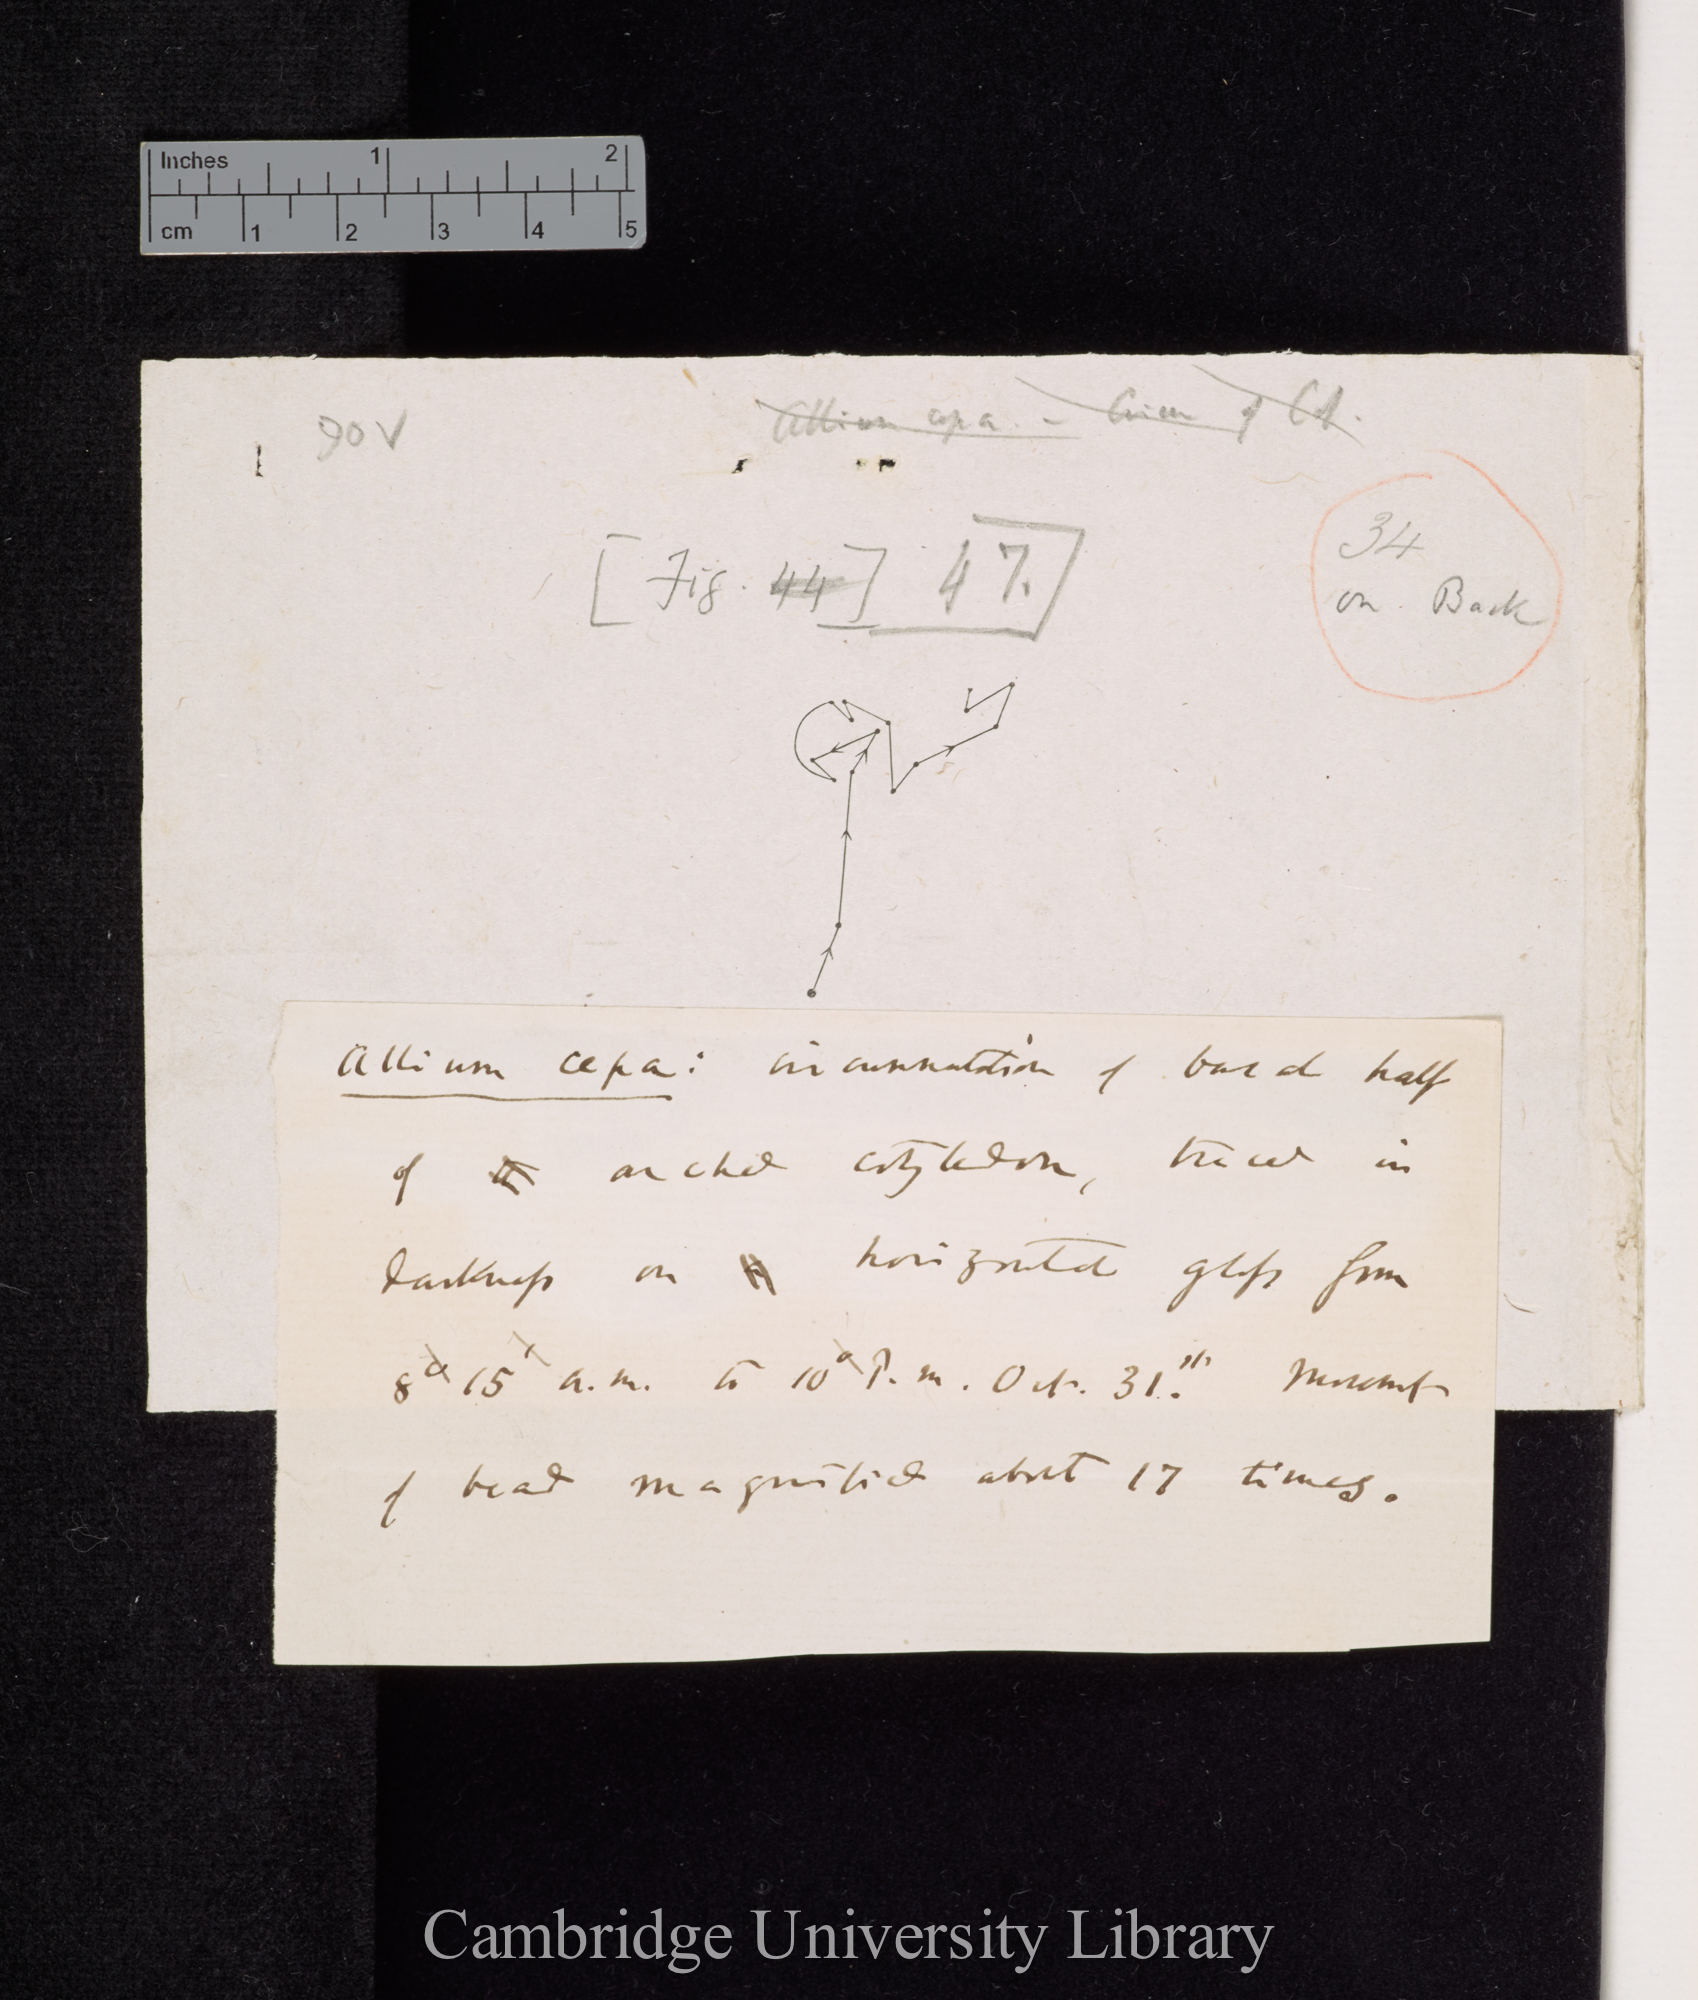 Inches 1 2
cm 1 2 3 4 5
90V
Allium cepa. - Circum of Cot.
[Fig. 44] 47.
34
on Back
Allium cepa: circumnutation of basal half
of arched cotyledon, traced in
darkness on horizontal glass from
8° 15' a.m. to 10° P.m. Oct. 31.st Movement
of bead magnified about 17 times.
Cambridge University Library